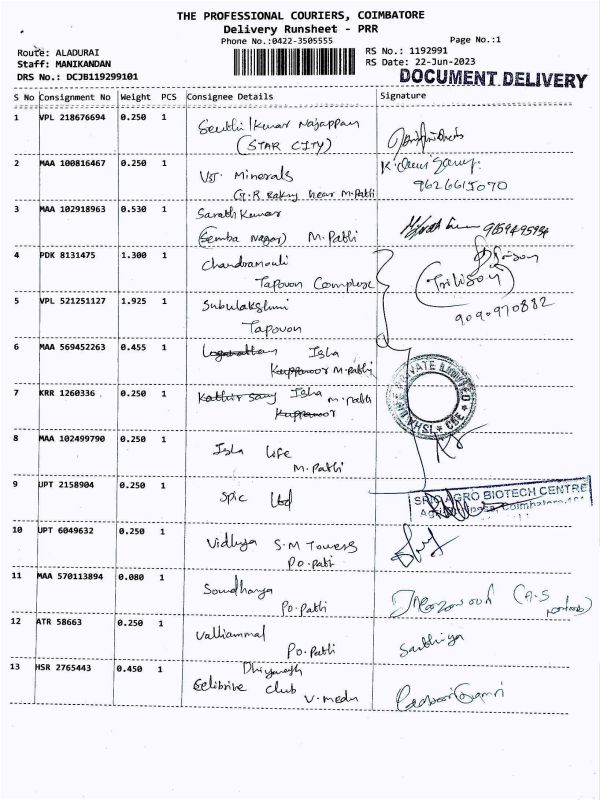 THE PROFESSIONAL COURIERS, COIMBATORE
Delivery Runsheet - PRR
Phone No.:0422-3505555
Page No.:1
Route: ALADURAI
Staff: MANIKANDAN
DRS No.: DCJB119299101
RS No.: 1192991
RS Date: 22-Jun-2023
DOCUMENT DELIVERY
S No Consignment No Weight PCS Consignee Details Signature
1 VPL 218676694 0.250 1 Senthil Kumar
(STAR CITY)
2 MAA 100816467 0.250 1 Minerals
G.R near M.Patti
9626615070
3 MAA 102918963 0.530 1 Sarath Kumar
(Semba Nagar) M.Patti
4 PDK 8131475 1.300 1 Chandramouli
Tapovon Complex
5 VPL 521251127 1.925 1 Subulakshmi
Tapovon
9090970882
6 MAA 569452263 0.455 1 Isha
M.patti
7 KRR 1260336 0.250 1 Isha M.patti
PRIVATE LIMITED
CBE
8 MAA 102499790 0.250 1 Isha Life
M.Patti
9 UPT 2158904 0.250 1 Spic Ltd
SPIC AGRO BIOTECH CENTRE
10 UPT 6049632 0.250 1 Vidhya S.M Towers
Po.patti
11 MAA 570113894 0.080 1 Soundharya
Po.Patti
12 ATR 58663 0.250 1 Valliammal
Po.Patti
13 HSR 2765443 0.450 1
Club
V.medu